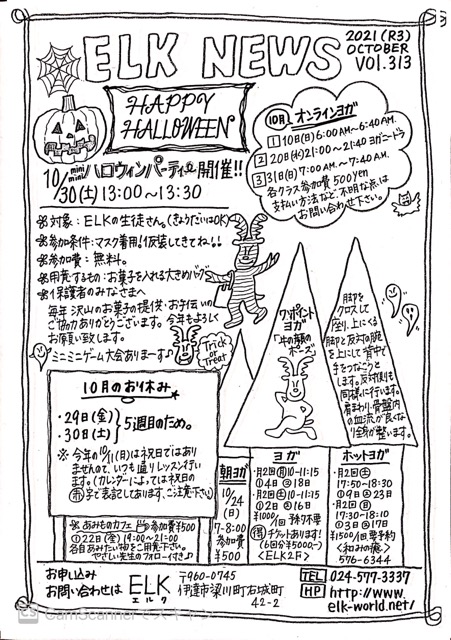 ELK NEWS
2021 (R3)
OCTOBER
VOL.313
HAPPY
HALLOWEEN
10月 オンラインヨガ
1 10(日)6:00 A.M.~6:40 A.M.
2 20(水)21:00~21:40 ヨガニードラ
3 31(日)7:00 A.M.~7:40 A.M.
各クラス参加費 500yen
支払い方法など、不明な点は
お問い合わせ下さい。
mini mini ハロウィンパーティー開催!!
10/30(土)13:00~13:30
※対象:ELKの生徒さん。(きょうだいはOK)
※参加条件:マスク着用!仮装してきてね!!
※参加費:無料。
※用意するもの:お菓子を入れる大きめバッグ
※保護者のみなさまへ
毎年沢山のお菓子の提供・お手伝いの
ご協力ありがとうございます。今年もよろしく
お願い致します。
ミニミニゲーム大会ありまーす♪
Trick
or
Treat
ワンポイント
ヨガ
「牛の顔の
ポーズ」
脚を
クロスして
座り、上にくる
脚と反対の腕
を上にして背中で
手をつなごうと
します。反対側も
同様に行います。
肩まわり・骨盤内
の血流が良くな
り全身が整います。
10月のお休み
・29日(金)
・30日(土)
5週目のため。
※ 今年の10/11(日)は祝日ではあり
ませんので、いつも通りレッスン行い
ます。(カレンダーによっては祝日の
赤字で表記してあります、ご注意下さい)
※あみものカフェ 参加費¥500
①22(金)19:00~21:00
各自あみたい物をご用意下さい。
やさしい先生のフォロー付き♪
朝ヨガ
10/24
(日)
7-8:00
参加費
¥500
ヨガ
・月2回(月)10-11:15
①4 ②18
・月2回(土)10-11:15
①2 ②16
¥1000/1回 予約不要
得チケットあります!
(6回分¥5000,-)
<ELK2F>
ホットヨガ
・月2回(土)
17:50-18:30
①9 ②23
・月2回(日)
17:30-18:10
①3 ②17
¥1500/1回 要予約
<和みの館>
576-6344
お申し込み
お問い合わせは
ELK
エルク
〒960-0745
伊達市梁川町右城町
42-2
TEL 024-577-3337
HP http://www.
elk-world.net/
CS CamScannerでスキャン